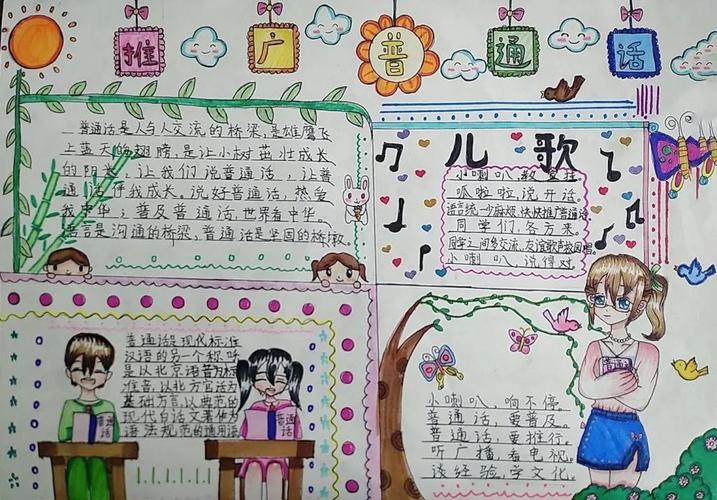 推广普通话
普通话是人与人交流的桥梁,是雄鹰飞
上蓝天的翅膀,是让小树茁壮成长
的阳光,让我们说普通话,让普
通话伴我成长。说好普通话,热爱
我中华;普及普通话,世界看中华。
语言是沟通的桥梁,普通话是坚固的桥墩。
儿歌
小喇叭
呱啦啦,说开话。
语言统一少麻烦,快快推广普通话
同学们,各方来。
同学之间多交流,友谊歌声校园
小喇叭,说得对。
普通话是现代标准
汉语的另一个称呼
是以北京语音为标
准音,以北方官话为
基础方言,以典范的
现代白话文著作为
语法规范的通用语
普通话
普通话
小喇叭,响不停。
普通话,要普及。
普通话,要推行。
听广播,看电视。
谈经验,学文化。
普通